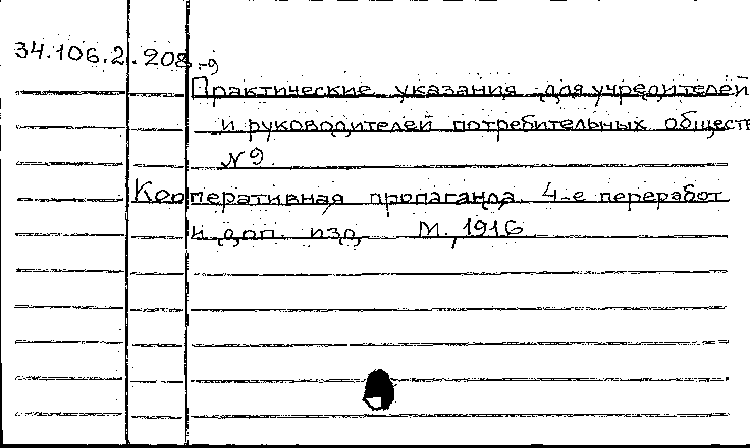 34.106.2.208-9
Практические указания для учредителей
и руководителей потребительных обществ
№ 9.
Кооперативная пропаганда. 4-е переработ
и доп. изд. М., 1916